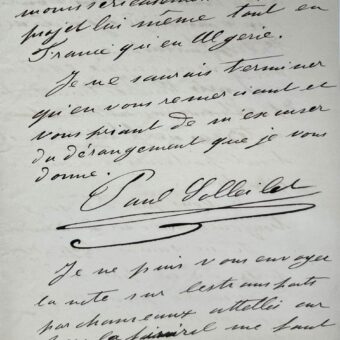 projet lui même tout en
France qu'en Algérie.
Je ne saurais terminer
qu'en vous remerciant et
vous priant de m'excuser
du dérangement que je vous
donne.
Paul Solleillet
Je ne puis vous envoyer
la note sur les transports
par chameaux attelés car
me faut